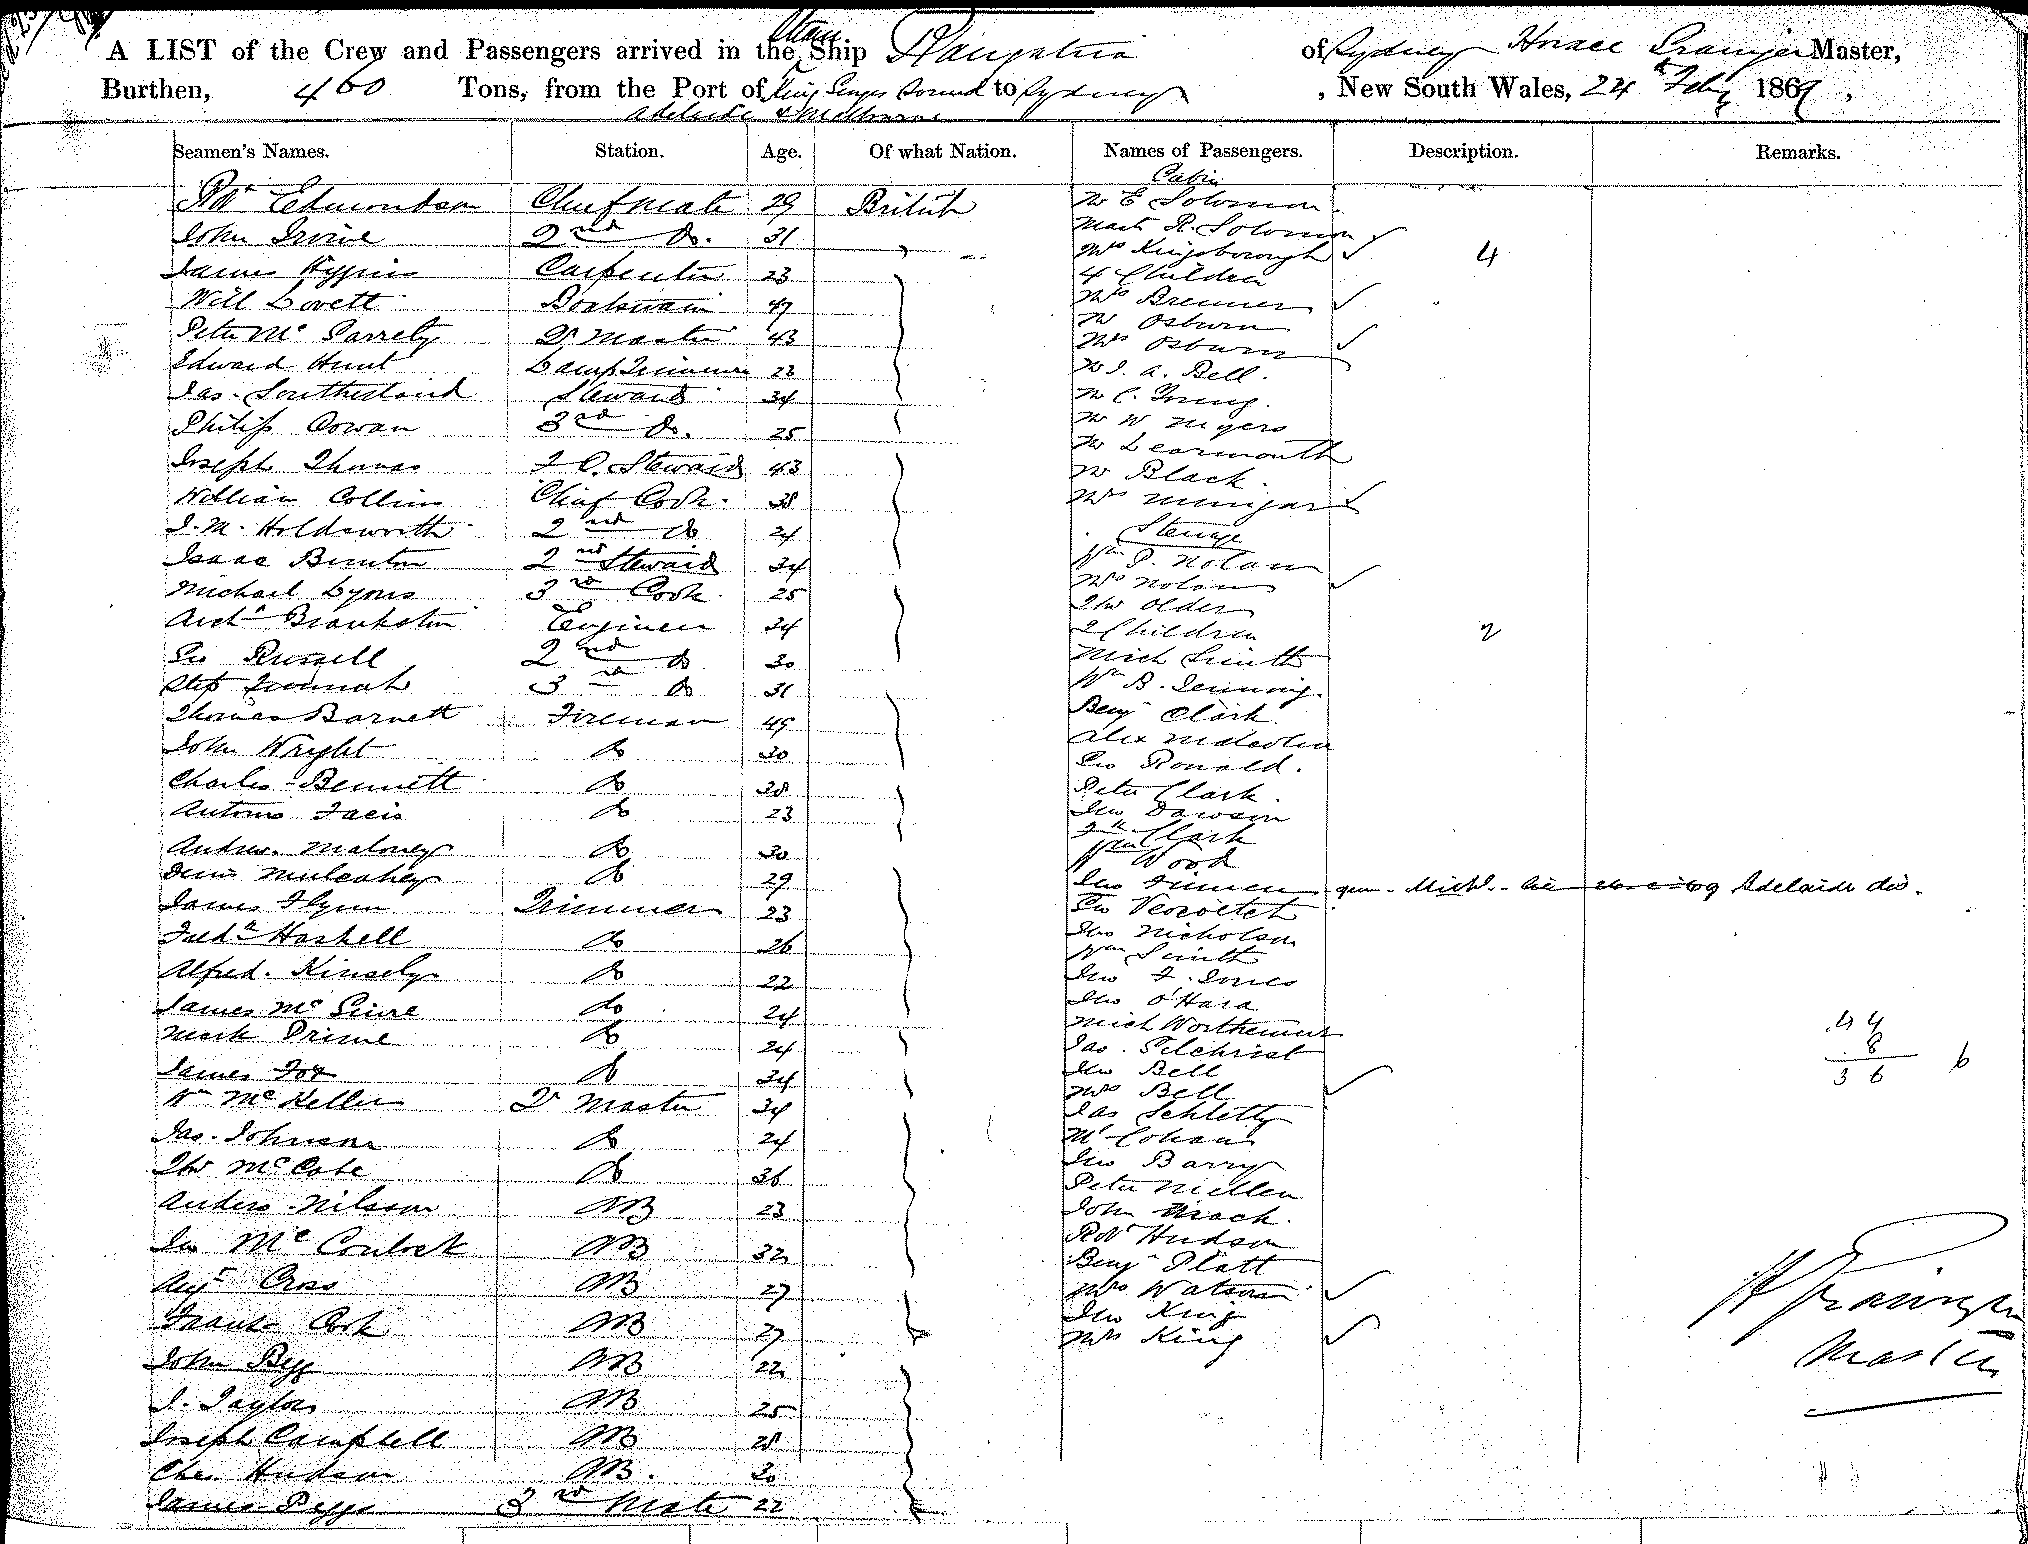 A LIST of the Crew and Passengers arrived in the Steam Ship Rangatira of Sydney Horace Grainger Master,
Burthen, 460 Tons, from the Port of King Georges Sound to Sydney, New South Wales, 24th Feby 1869,
Adelaide & Melbourne
Seamen's Names. Station. Age. Of what Nation. Names of Passengers. Description. Remarks.
Cabin
Robt Edmondson Chief Mate 29 British Mr E Solomon
John Irvine 2nd Do. 31 Mast R. Solomon
Mrs Kingsborough 4
James Higgins Carpenter 23 4 Children
Will Lovett Boatswain 47 Mrs Bremner
Mr Osburn
Peter Mc Garrety Qr Master 43 Mrs Osburn
Edward Hunt Lamp Trimmer 22 Mr J. A. Bell.
Jas. Southerland Steward 34 Mr C. Young.
Philip Cowan 3rd Do. 25 Mr W Myers
Mr Learmonth
Joseph Thomas F. C. Steward 43 Mr Black.
William Collins Chief Cook. 38 Mrs
J. M. Holdsworth 2nd Do 24 Steerage
Isaac Bunton 2nd Steward 34 Wm P. Nolan
Michael Lyons 3rd Cook 25 Mrs Nolan
Thos Older
Archd Brankston Engineer 34 2 Children 2
Geo Russell 2nd Do 30 Mich Smith
Step 3rd Do 31 Wm B. Jenning.
Thomas Barnett Fireman 49 Benj Clark
Alex Malcolm
John Wright Do 30 Geo Ronald.
Charles Bennett Do 28 Peter Clark.
Antonio Facio Do 23 Jno Dawson
Clark
Andrew Maloney Do 30 Wm Wood
Denis Mulcahey Do 29 Jno Finnen
James Flynn Trimmer 23 Geo
Fredk Haskell Do 26 Jno Nicholson
Wm Smith
Alfred Kinsely Do 22 Jno F. Jones
James Mc Do 24 Jno O'Hara
Mark Prime Do 24 Mich
Jas. Gilchrist 44
James Fox Do 34 Jno Bell 8
Mrs Bell 36 6
Wm McKeller Qr Master 34 Jas
Jas. Johnson Do 24 Mr Cohan
Thos McCabe Do 36 Jno Barry
Peter Niellen
Anders Nilsson AB 23 John
Jno McCulock AB 32 Robt Hudson
Benj Platt
Cross AB 27 Mrs Watson
Jno King
Frank Cork AB 27 Mrs King
John Begg AB 22 H Grainger
J. Taylor AB 25 Master
Joseph Campbell AB 28
Chas Hudson AB. 30
James Peggs 3rd Mate 22